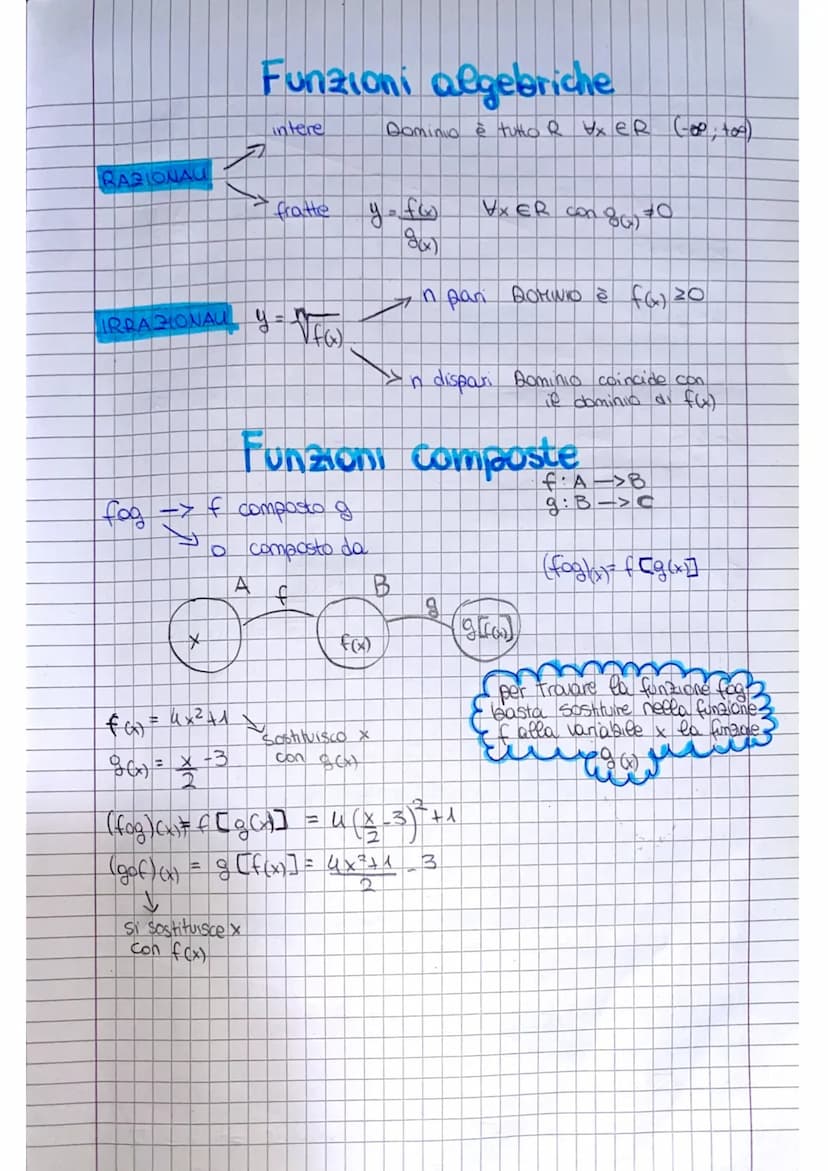 Funzioni algebriche
intere Dominio è tutto R ∀x ∈ R (-∞; +∞)
RAZIONALI
fratte y = f(x)/g(x) ∀x ∈ R con g(x) ≠ 0
n pari DOMINIO è f(x) ≥ 0
IRRAZIONALI y = ⁿ√f(x)
n dispari Dominio coincide con
il dominio di f(x)
Funzioni composte
f: A -> B
g: B -> C
fog -> f composto g
o composto da
(fog)(x) = f[g(x)]
A f B g
x f(x) g[f(x)]
per trovare la funzione fog
basta sostituire nella funzione
f alla variabile x la funzione
g(x)
f(x) = 4x²+1
sostituisco x
con g(x)
g(x) = x/2 - 3
(fog)(x) = f[g(x)] = 4(x/2 - 3)² + 1
(gof)(x) = g[f(x)] = 4x²+1/2 - 3
si sostituisce x
con f(x)